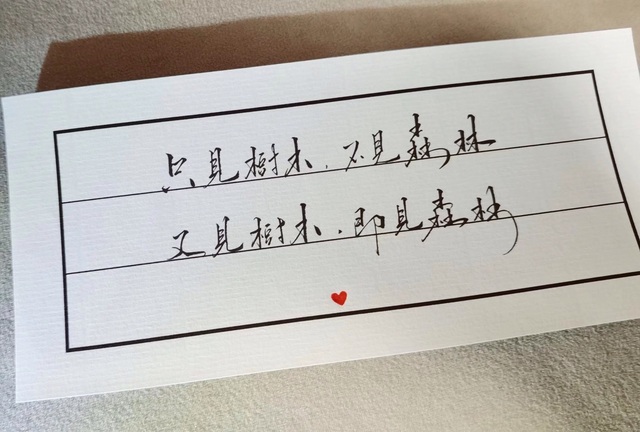 只見樹木，不見森林
又見樹木，即見森林